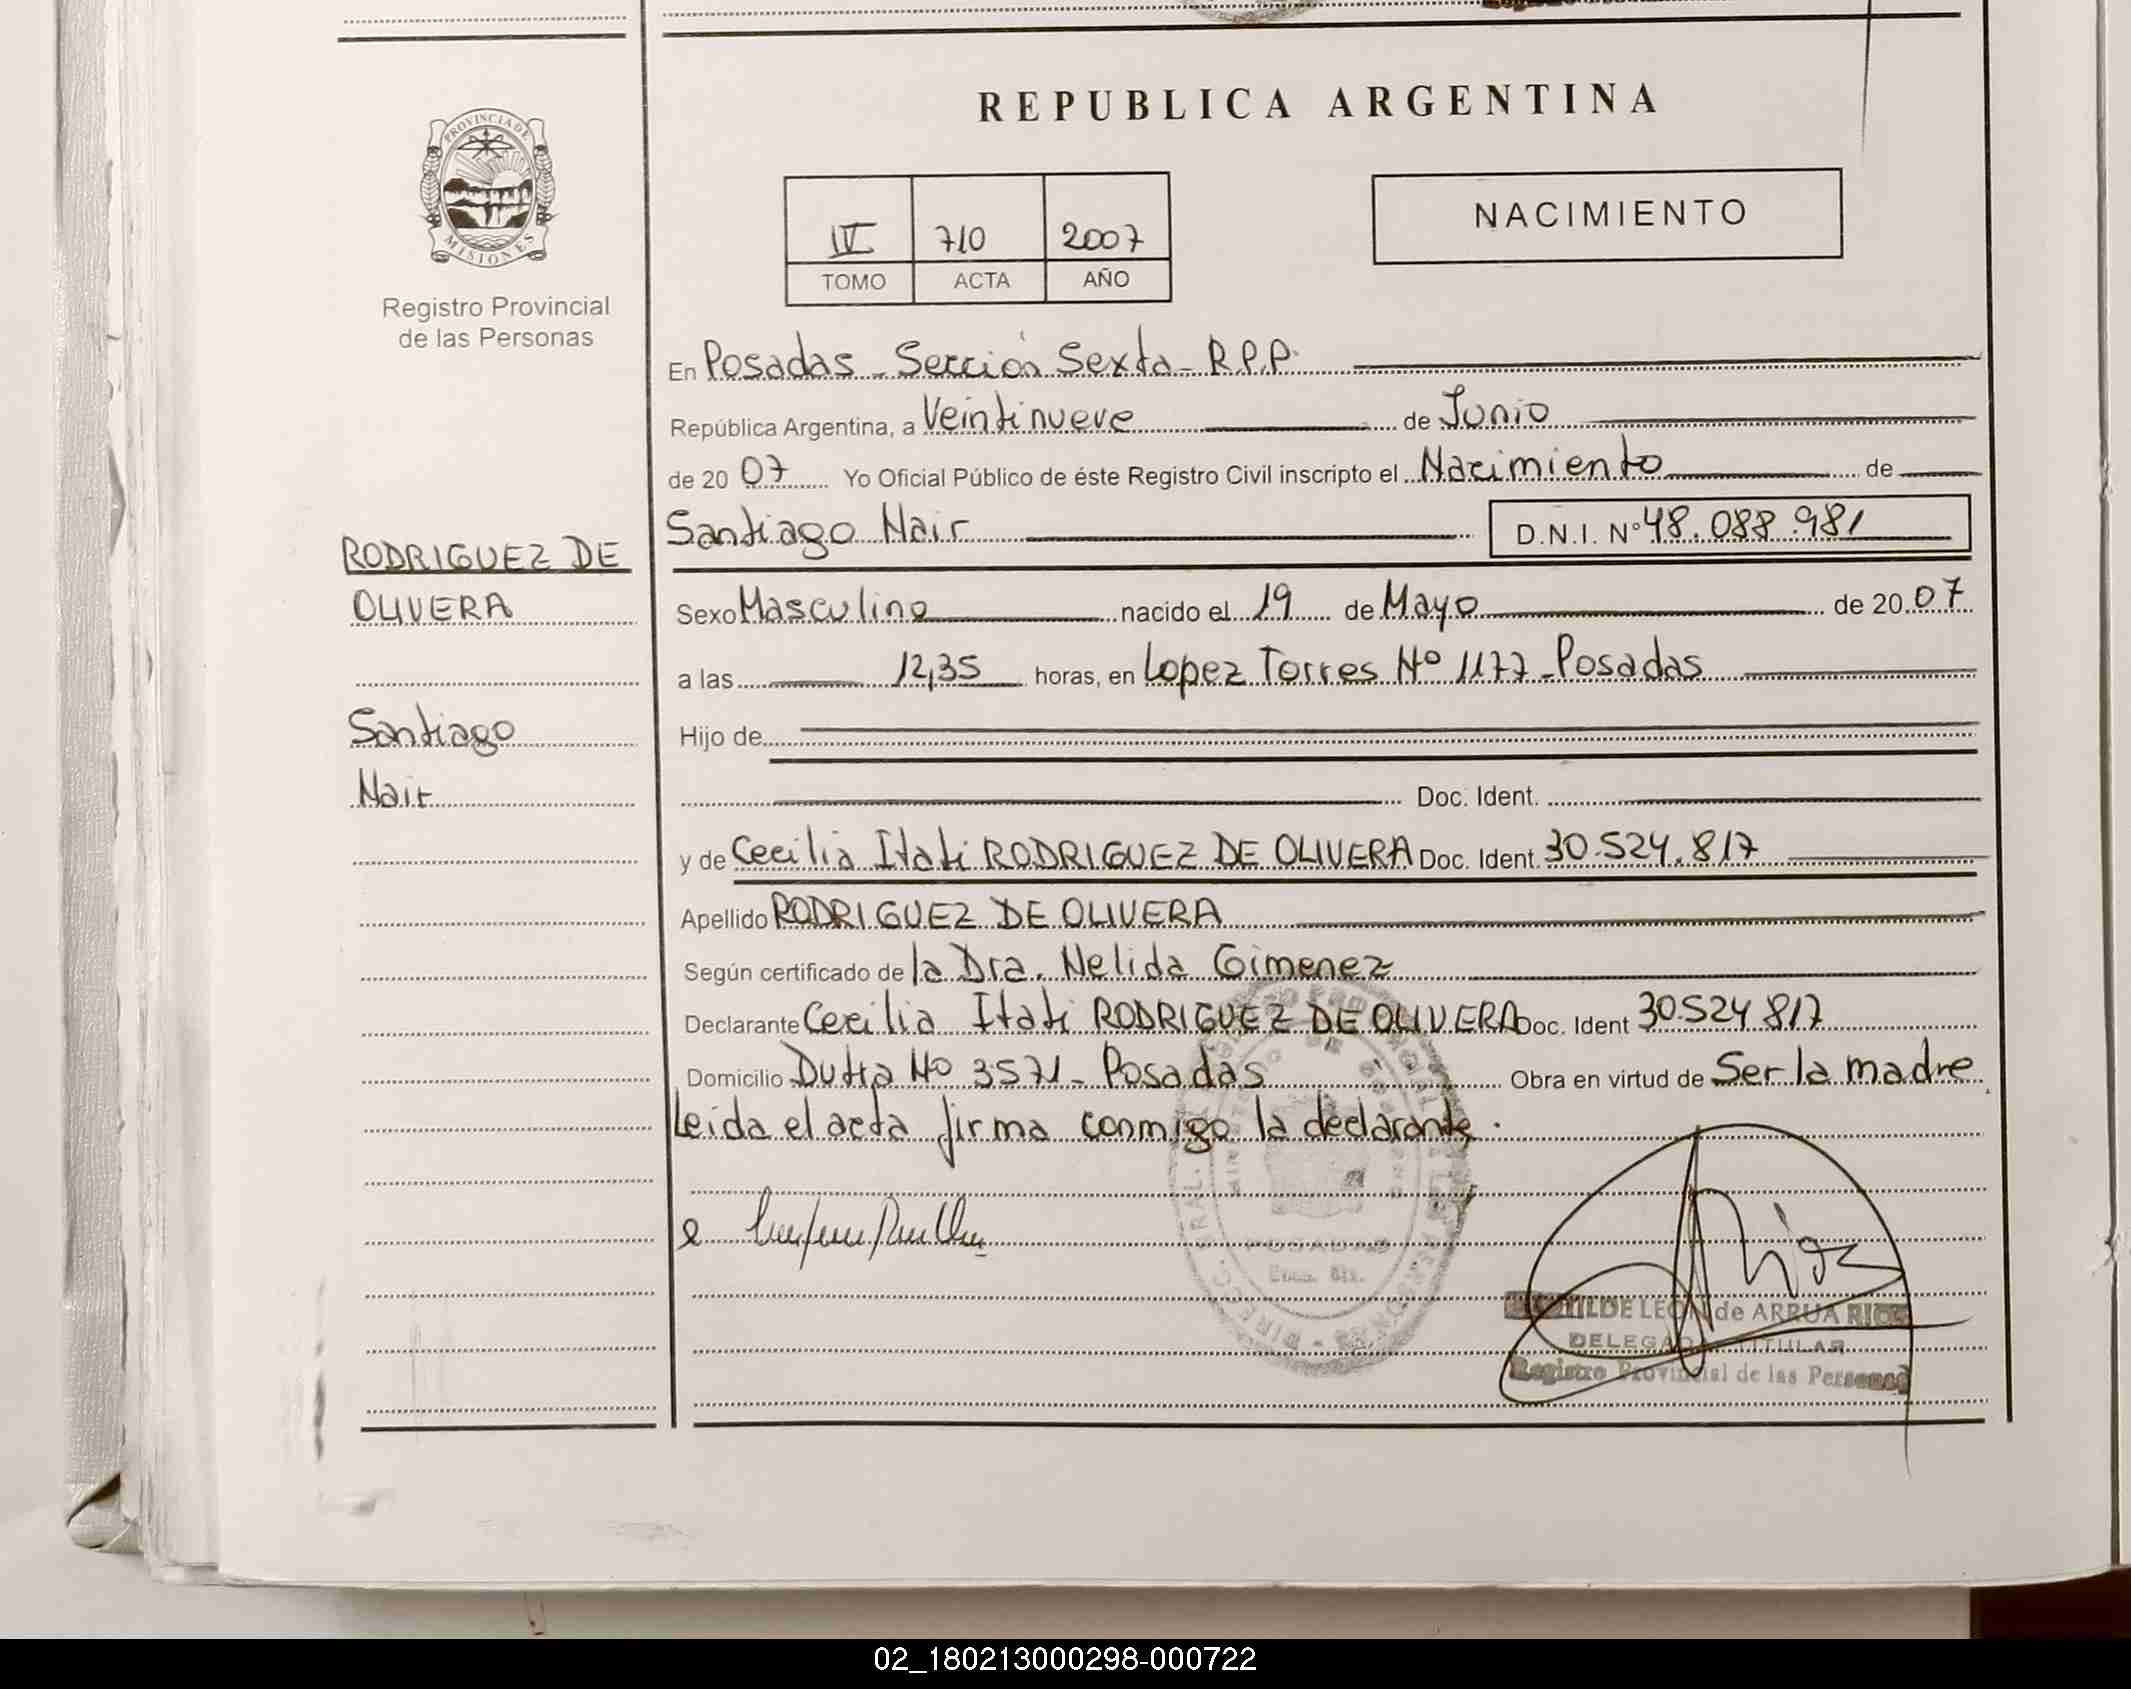 REPUBLICA ARGENTINA
PROVINCIA DE
MISIONES
Registro Provincial
de las Personas
IV 710 2007
TOMO ACTA AÑO
NACIMIENTO
En Posadas - Sección Sexta - R.P.P.
República Argentina, a Veintinueve de Junio
de 2007 Yo Oficial Público de éste Registro Civil inscripto el Nacimiento de
Santiago Nair D.N.I. Nº 48.088.981
RODRIGUEZ DE
OLIVERA
Santiago
Nair
Sexo Masculino nacido el 19 de Mayo de 2007
a las 12,35 horas, en Lopez Torres Nº 1177 - Posadas
Hijo de
Doc. Ident.
y de Cecilia Itati RODRIGUEZ DE OLIVERA Doc. Ident. 30.524.817
Apellido RODRIGUEZ DE OLIVERA
Según certificado de la Dra. Nelida Gimenez
Declarante Cecilia Itati RODRIGUEZ DE OLIVERA Doc. Ident 30.524 817
Domicilio Dutra Nº 3571 - Posadas Obra en virtud de Ser la madre
Leida el acta firma conmigo la declarante.
POSADAS
LEON de ARRUA RIOS
DELEGADA TITULAR
Registro Provincial de las Personas
02_180213000298-000722